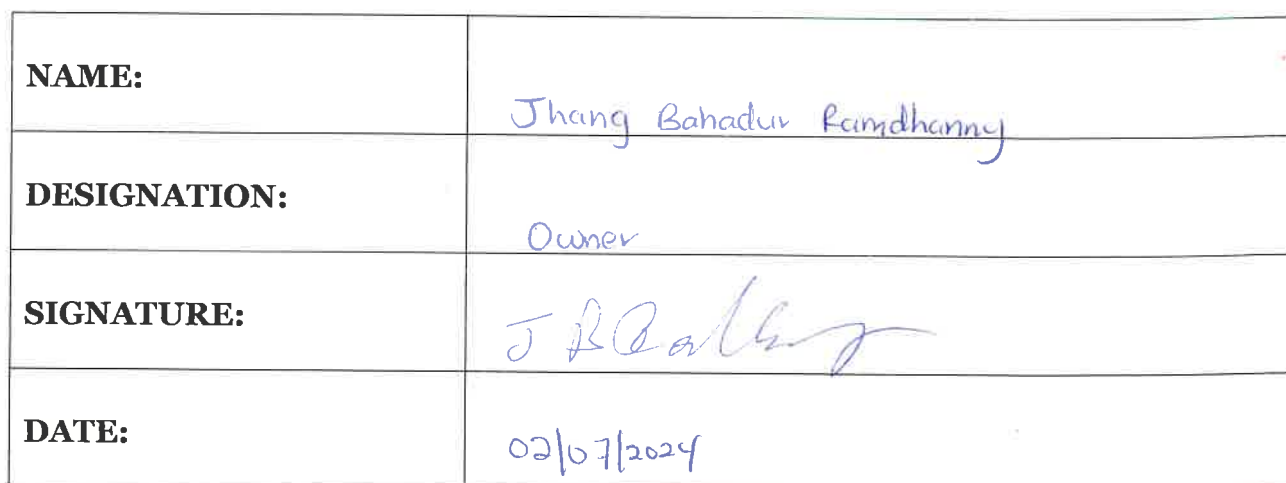 NAME: Jhang Bahadur Ramdhanny
DESIGNATION: Owner
SIGNATURE:
DATE: 02/07/2024